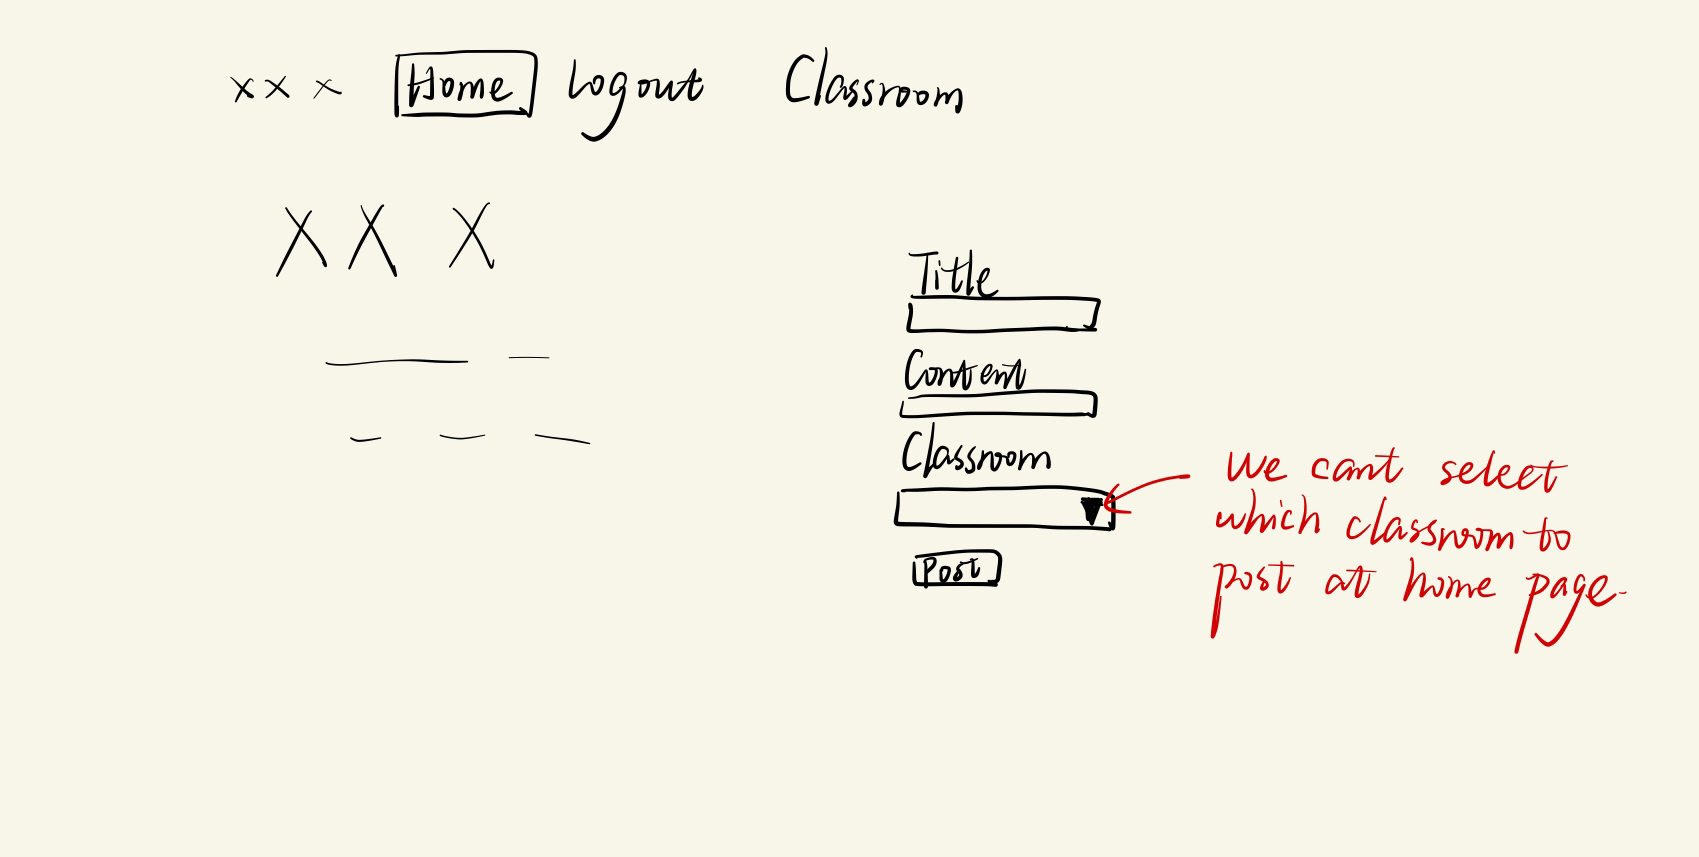 x x x Home Logout Classroom
X X X
Title
Content
Classroom
Post
We can't select
which classroom to
post at home page.